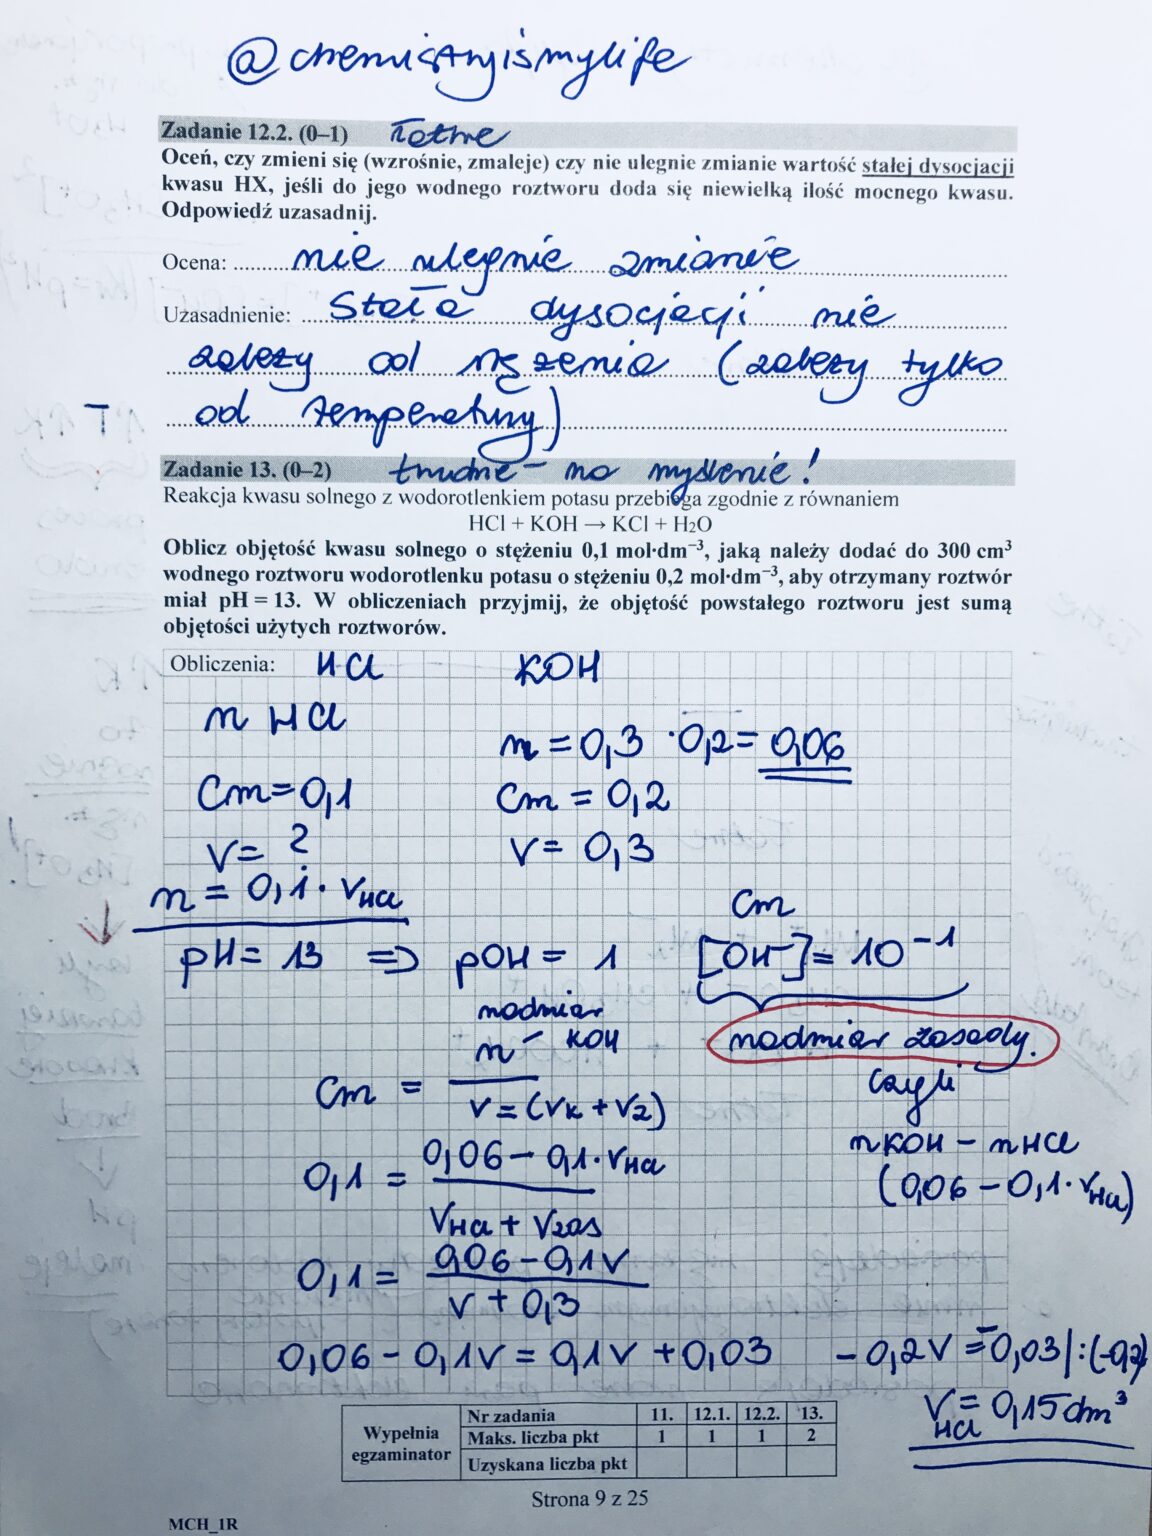 @chemistryismylife
Zadanie 12.2. (0–1) łatwe
Oceń, czy zmieni się (wzrośnie, zmaleje) czy nie ulegnie zmianie wartość stałej dysocjacji
kwasu HX, jeśli do jego wodnego roztworu doda się niewielką ilość mocnego kwasu.
Odpowiedź uzasadnij.
Ocena: nie ulegnie zmianie
Uzasadnienie: Stała dysocjacji nie
zależy od stężenia (zależy tylko
od temperatury)
Zadanie 13. (0–2) trudne – na myślenie!
Reakcja kwasu solnego z wodorotlenkiem potasu przebiega zgodnie z równaniem
HCl + KOH → KCl + H2O
Oblicz objętość kwasu solnego o stężeniu 0,1 mol·dm⁻³, jaką należy dodać do 300 cm³
wodnego roztworu wodorotlenku potasu o stężeniu 0,2 mol·dm⁻³, aby otrzymany roztwór
miał pH = 13. W obliczeniach przyjmij, że objętość powstałego roztworu jest sumą
objętości użytych roztworów.
Obliczenia: HCl KOH
n HCl
n = 0,3 · 0,2 = 0,06
Cm = 0,1 Cm = 0,2
V = ? V = 0,3
n = 0,1 · VHCl
Cm
pH = 13 => pOH = 1 [OH⁻] = 10⁻¹
nadmiar zasady.
nadmiar
n KOH
Cm = V = (Vk + Vz)
czyli
nKOH – nHCl
(0,06 – 0,1 · VHCl)
0,1 = 0,06 – 0,1 · VHCl
VHCl + Vzas
0,1 = 0,06 – 0,1V
V + 0,3
0,06 – 0,1V = 0,1V + 0,03 – 0,2V = –0,03 /:(–0,2)
VHCl = 0,15 dm³
Wypełnia egzaminator
Nr zadania 11. 12.1. 12.2. 13.
Maks. liczba pkt 1 1 1 2
Uzyskana liczba pkt
Strona 9 z 25
MCH_1R